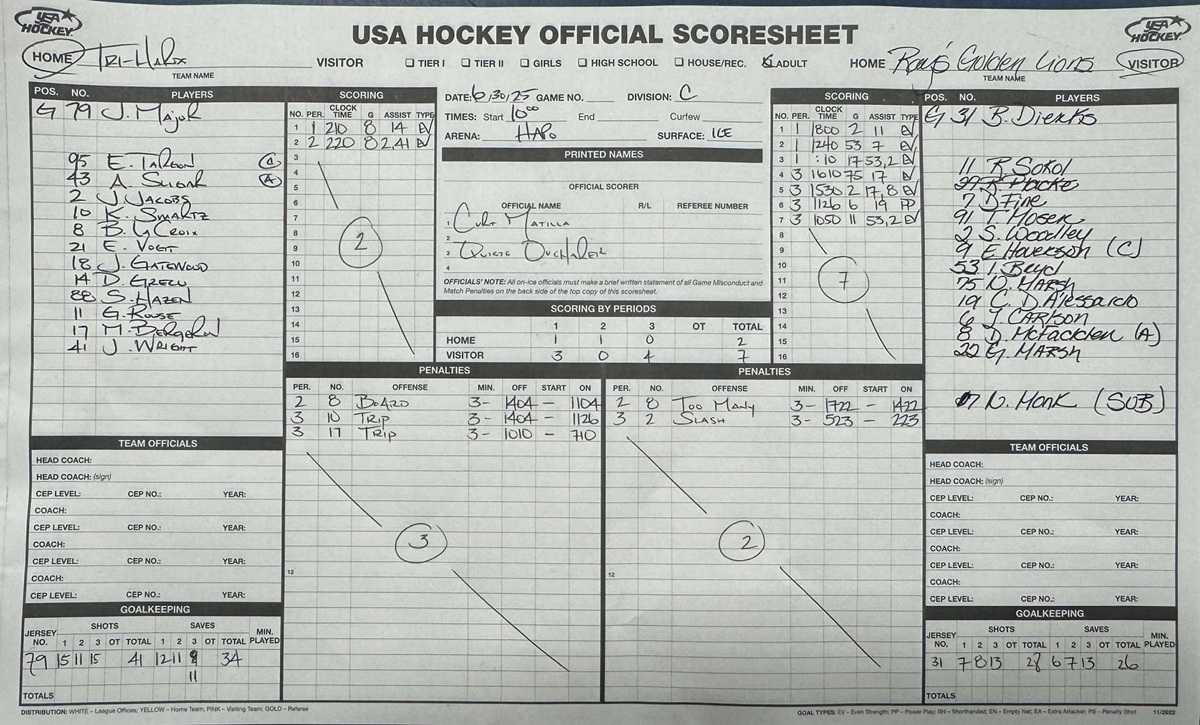 USA HOCKEY
USA HOCKEY OFFICIAL SCORESHEET
USA HOCKEY
HOME Tri-Harx VISITOR
TEAM NAME
TIER I TIER II GIRLS HIGH SCHOOL HOUSE/REC. ADULT
HOME Ray's Golden Lions VISITOR
TEAM NAME
POS. NO. PLAYERS
G 79 J. Major
95 E. C
43 A. A
2 J. Jacobs
10 K. Smartz
8 B. LaCroix
21 E. Vogt
18 J. Gatewood
14 D. Greco
88 S. Hazen
11 G. Rouse
17 M. Bergeron
41 J. Wright
SCORING
NO. PER. CLOCK TIME G ASSIST TYPE
1 1 210 8 14 EV
2 2 220 8 2,41 EV
3
4
5
6
7
8
9
10
11
12
13
14
15
16
2
DATE: 6/30/25 GAME NO. DIVISION: C
TIMES: Start 10:00 End Curfew
ARENA: HAPO SURFACE: ICE
PRINTED NAMES
OFFICIAL SCORER
OFFICIAL NAME R/L REFEREE NUMBER
1 Curt Matilla
2
3
4
OFFICIALS' NOTE: All on-ice officials must make a brief written statement of all Game Misconduct and
Match Penalties on the back side of the top copy of this scoresheet.
SCORING BY PERIODS
1 2 3 OT TOTAL
HOME 1 1 0 2
VISITOR 3 0 4 7
SCORING
NO. PER. CLOCK TIME G ASSIST TYPE
1 1 1800 2 11 EV
2 1 1240 53 7 EV
3 1 :10 17 53,2 EV
4 3 1610 75 17 EV
5 3 1530 2 17,8 EV
6 3 1126 6 19 PP
7 3 1050 11 53,2 EV
8
9
10
11
12
13
14
15
16
7
POS. NO. PLAYERS
G 31 B. Diercks
11 R. Sokol
7 D. Fine
91 T. Moser
2 S. Woodley
9 E. Haverson (C)
53 I. Boyd
75 N. Marsh
19 C. D'Alessardo
6 J. Carlson
8 D. McFadden (A)
22 G. Marsh
N. Monk (SUB)
PENALTIES
PER. NO. OFFENSE MIN. OFF START ON
2 8 Board 3- 1404 - 1104
3 10 Trip 3- 1404 - 1126
3 17 Trip 3- 1010 - 710
3
12
PENALTIES
PER. NO. OFFENSE MIN. OFF START ON
2 8 Too Many 3- 1722 - 1422
3 2 Slash 3- 523 - 223
2
12
TEAM OFFICIALS
HEAD COACH:
HEAD COACH: (sign)
CEP LEVEL: CEP NO.: YEAR:
COACH:
CEP LEVEL: CEP NO.: YEAR:
COACH:
CEP LEVEL: CEP NO.: YEAR:
COACH:
CEP LEVEL: CEP NO.: YEAR:
TEAM OFFICIALS
HEAD COACH:
HEAD COACH: (sign)
CEP LEVEL: CEP NO.: YEAR:
COACH:
CEP LEVEL: CEP NO.: YEAR:
COACH:
CEP LEVEL: CEP NO.: YEAR:
COACH:
CEP LEVEL: CEP NO.: YEAR:
GOALKEEPING
SHOTS SAVES
JERSEY NO. 1 2 3 OT TOTAL 1 2 3 OT TOTAL MIN. PLAYED
79 15 11 15 41 12 11 34
11
TOTALS
GOALKEEPING
SHOTS SAVES
JERSEY NO. 1 2 3 OT TOTAL 1 2 3 OT TOTAL MIN. PLAYED
31 7 8 13 28 6 7 13 26
TOTALS
DISTRIBUTION: WHITE – League Offices; YELLOW – Home Team; PINK – Visiting Team; GOLD – Referee
GOAL TYPES: EV – Even Strength; PP – Power Play; SH – Shorthanded; EN – Empty Net; EA – Extra Attacker; PS – Penalty Shot 11/2022